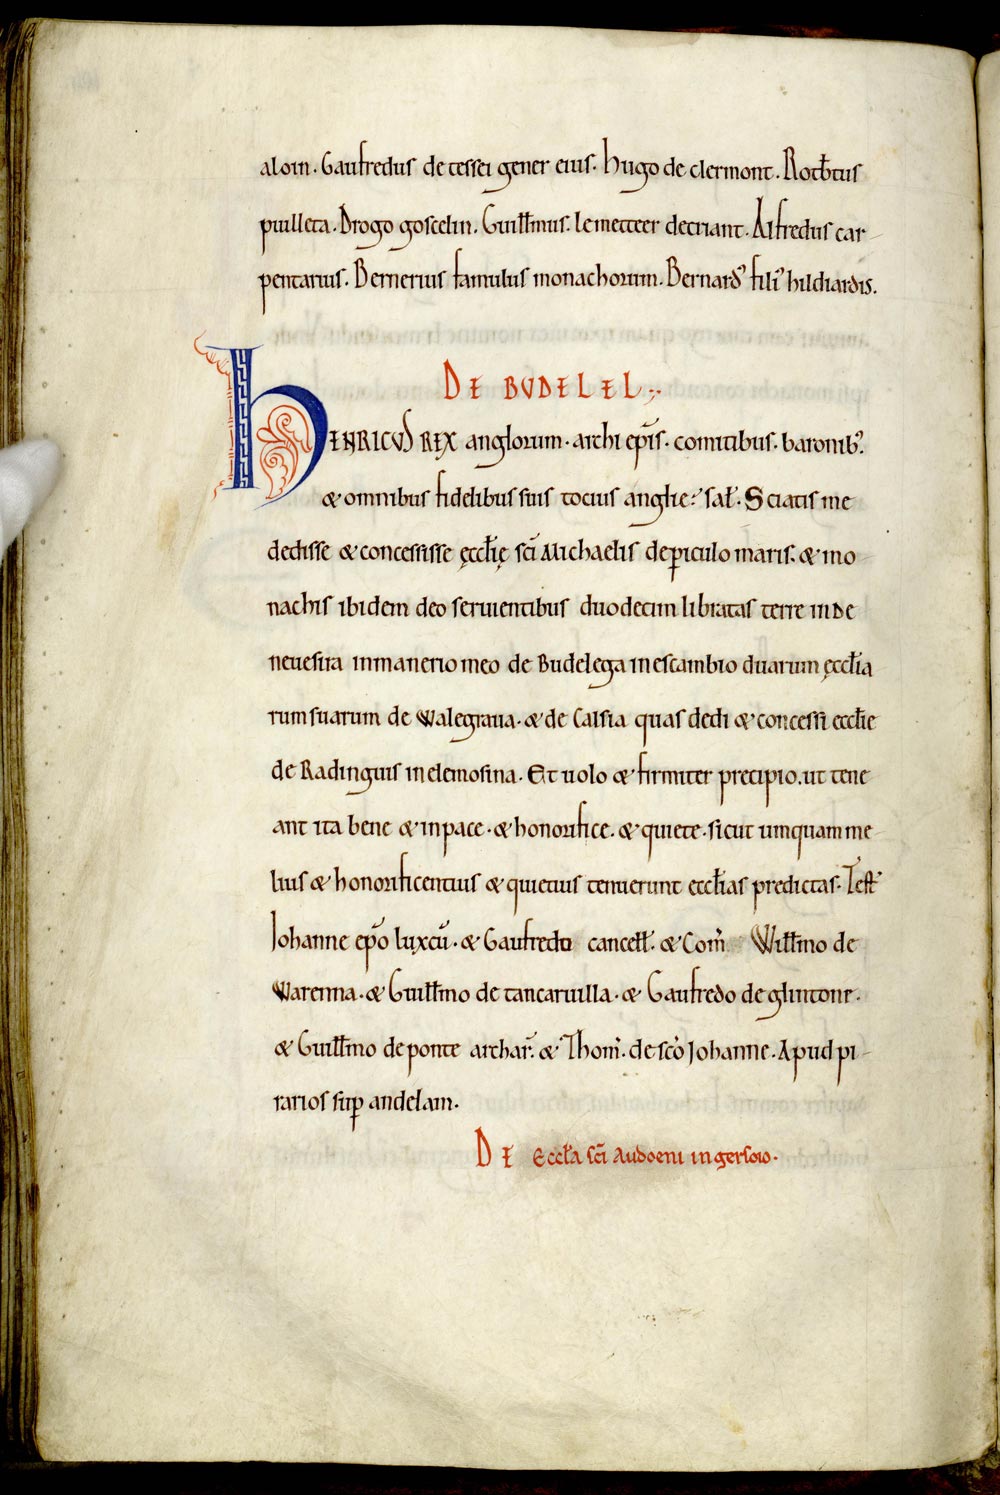 aloin. Gaufredus de tessei gener eius. hugo de clermont. Rotb̄tus
piilleta. Drogo goscelin. Guillm̄us. le metteer de criant. Alfredus car-
pentarius. Bernerius famulus monachorum. Bernardꝰ filiꝰ hildiardis.
DE BUDELEL
hENRICUS REX anglorum. archi ep̄is. comitibus. baronibꝰ.
& omnibus fidelibus suis tocius anglie: sal̄. Sciatis me
dedisse & concessisse ęccl̄ię sc̄i Michaelis de ꝑiculo maris. & mo-
nachis ibidem deo seruientibus duodecim libratas terre in de
neuesira in manerio meo de Budelega in escambio duarum ęccl̄ia
rum suarum de Walegraua. & de Calsia quas dedi & concessi eccl̄ie
de Radinguis in elemosina. Et uolo & firmiter precipio. ut tene
ant ita bene & in pace. & honorifice. & quiete. sicut umquam me-
lius & honorificentius & quietius tenuerunt eccl̄ias predictas. Test̄
Johanne ep̄o luxcū. & Gaufredo cancell̄. & Com̄ Willm̄o de
Warenna. & Guillm̄o de tancaruilla. & Gaufredo de glintone.
& Guillm̄o de ponte archar̄. & Thom̄. de sc̄o Johanne. Apud pi-
rarios suꝑ andelam.
DE Eccl̄a sc̄i Audoeni in gersoio.